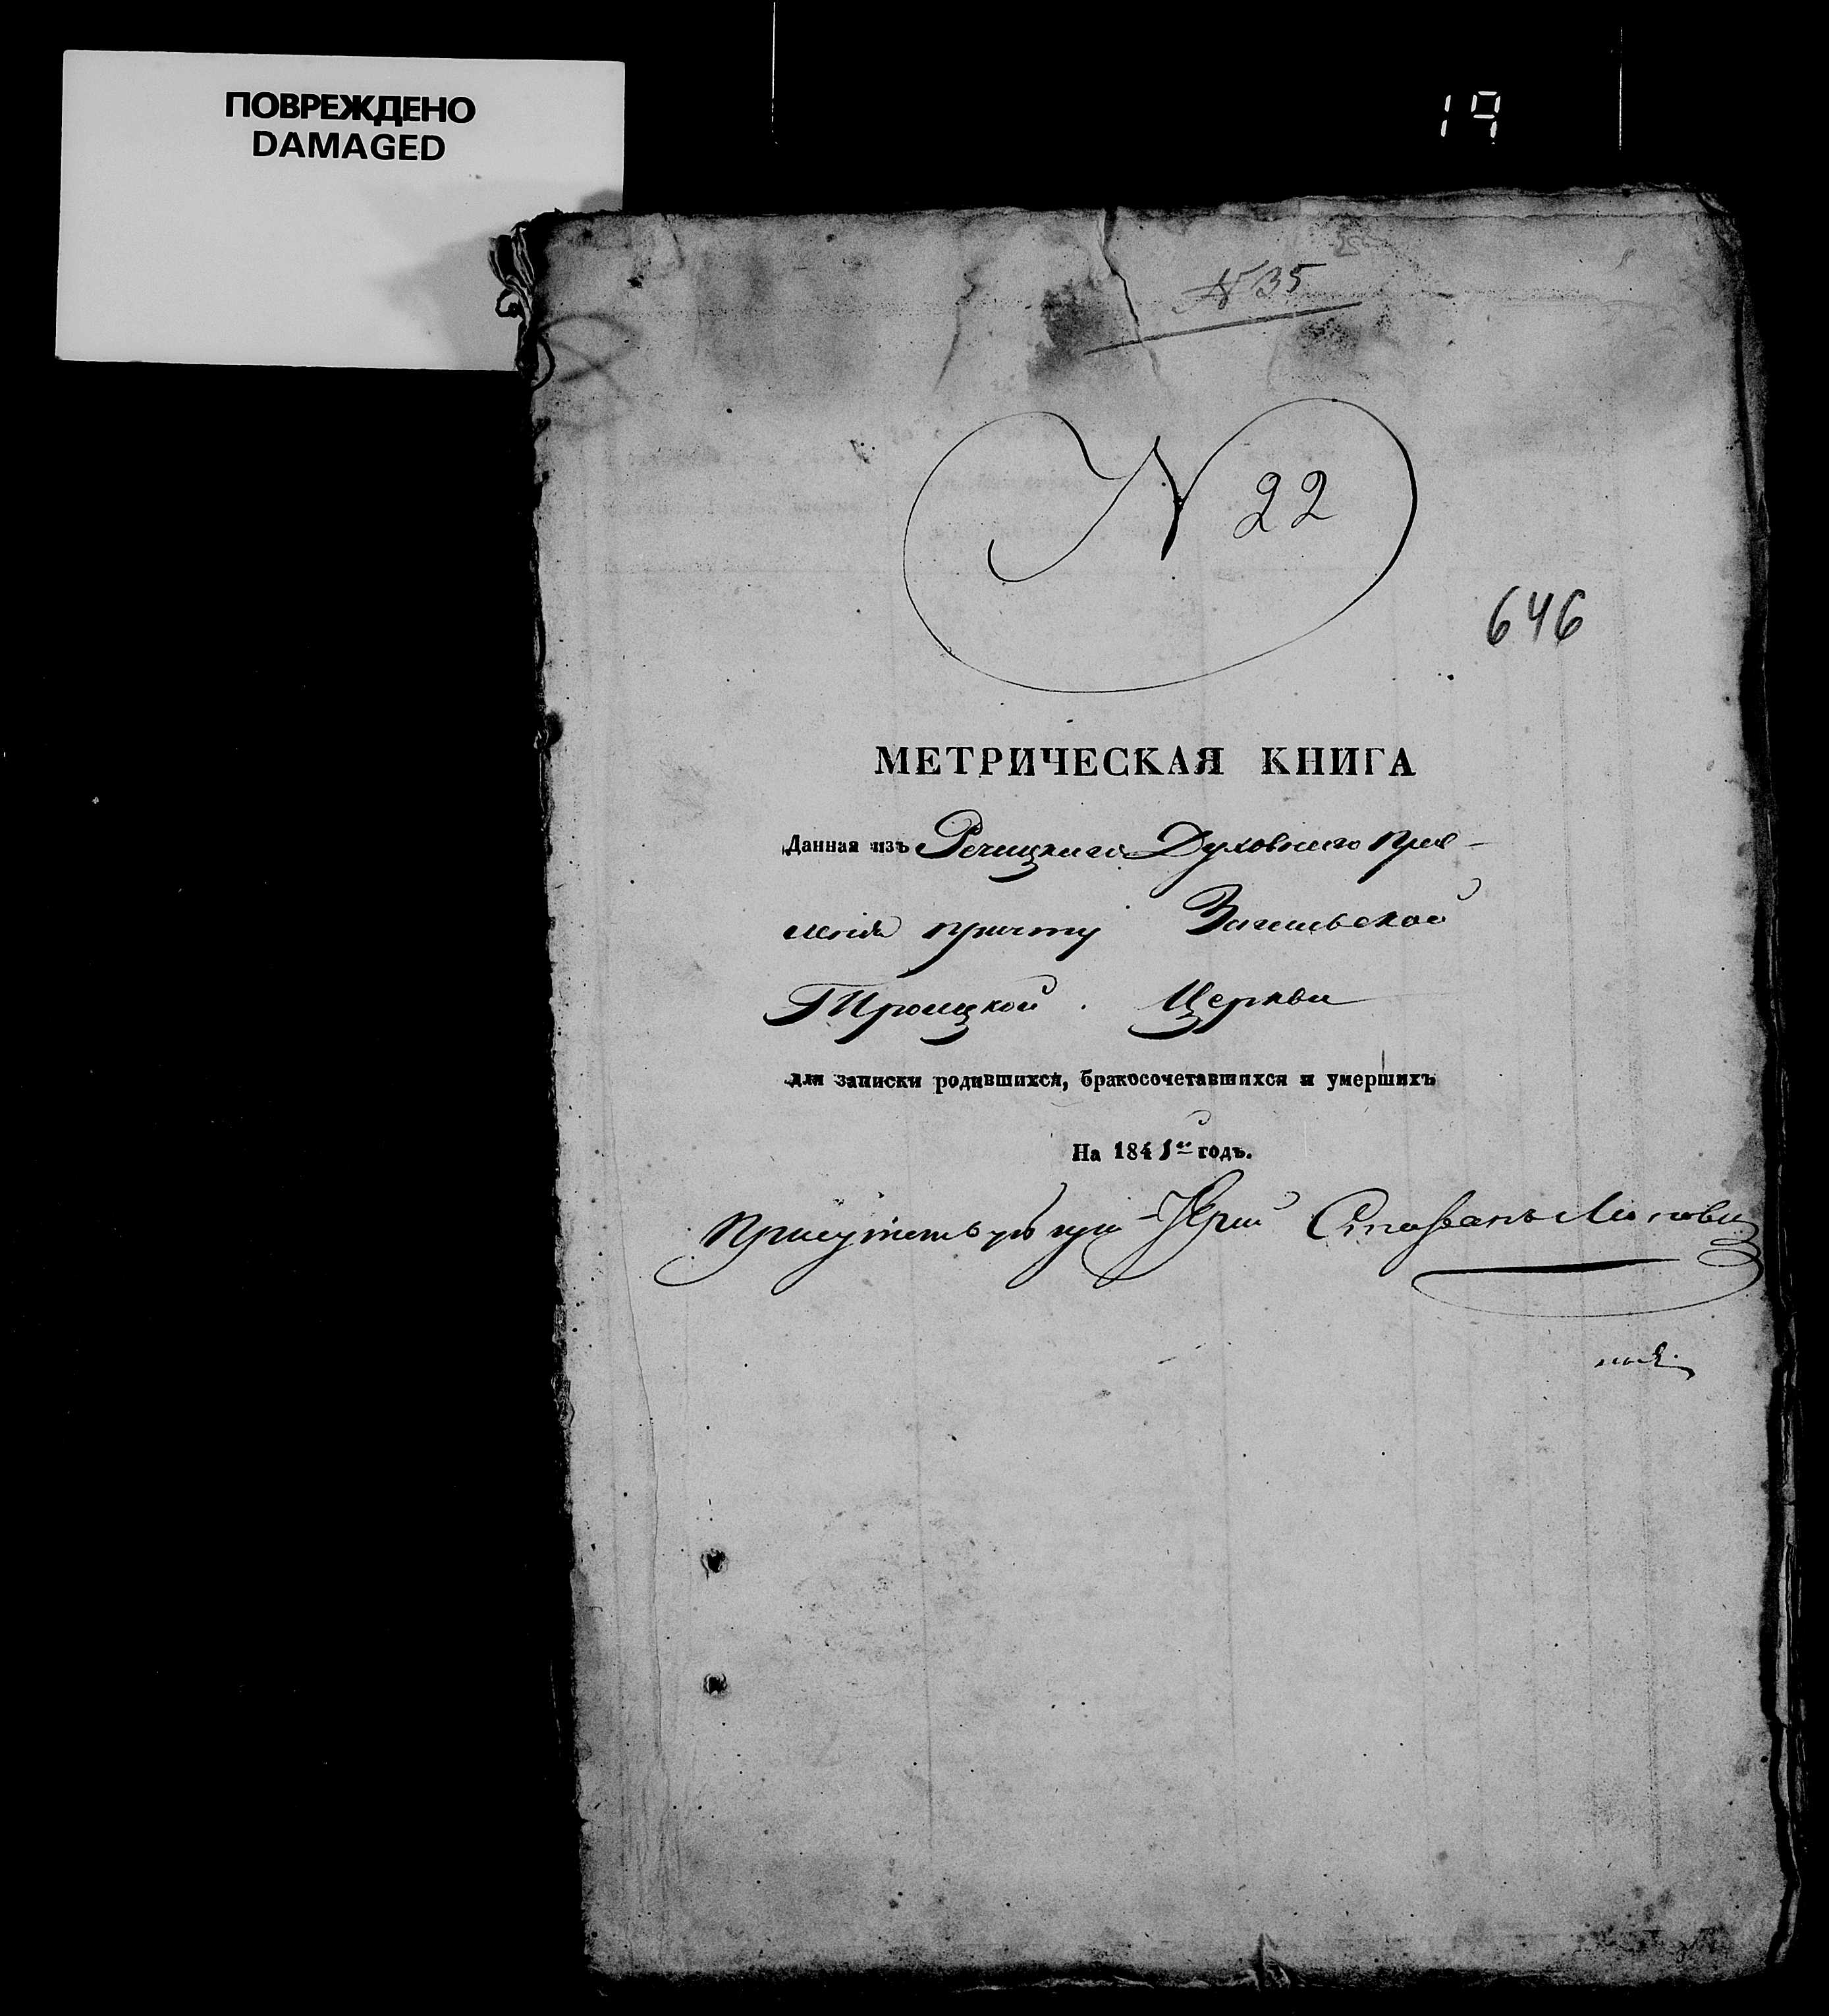 ПОВРЕЖДЕНО
DAMAGED
19
N 35
N 22
646
МЕТРИЧЕСКАЯ КНИГА
Данная изъ Речицкаго Духовнаго Прав-
ленія причту
Троицкой Церкви
для записки родившихся, бракосочетавшихся и умершихъ
На 1841й годъ.
Присутствующій Іерей Стефанъ